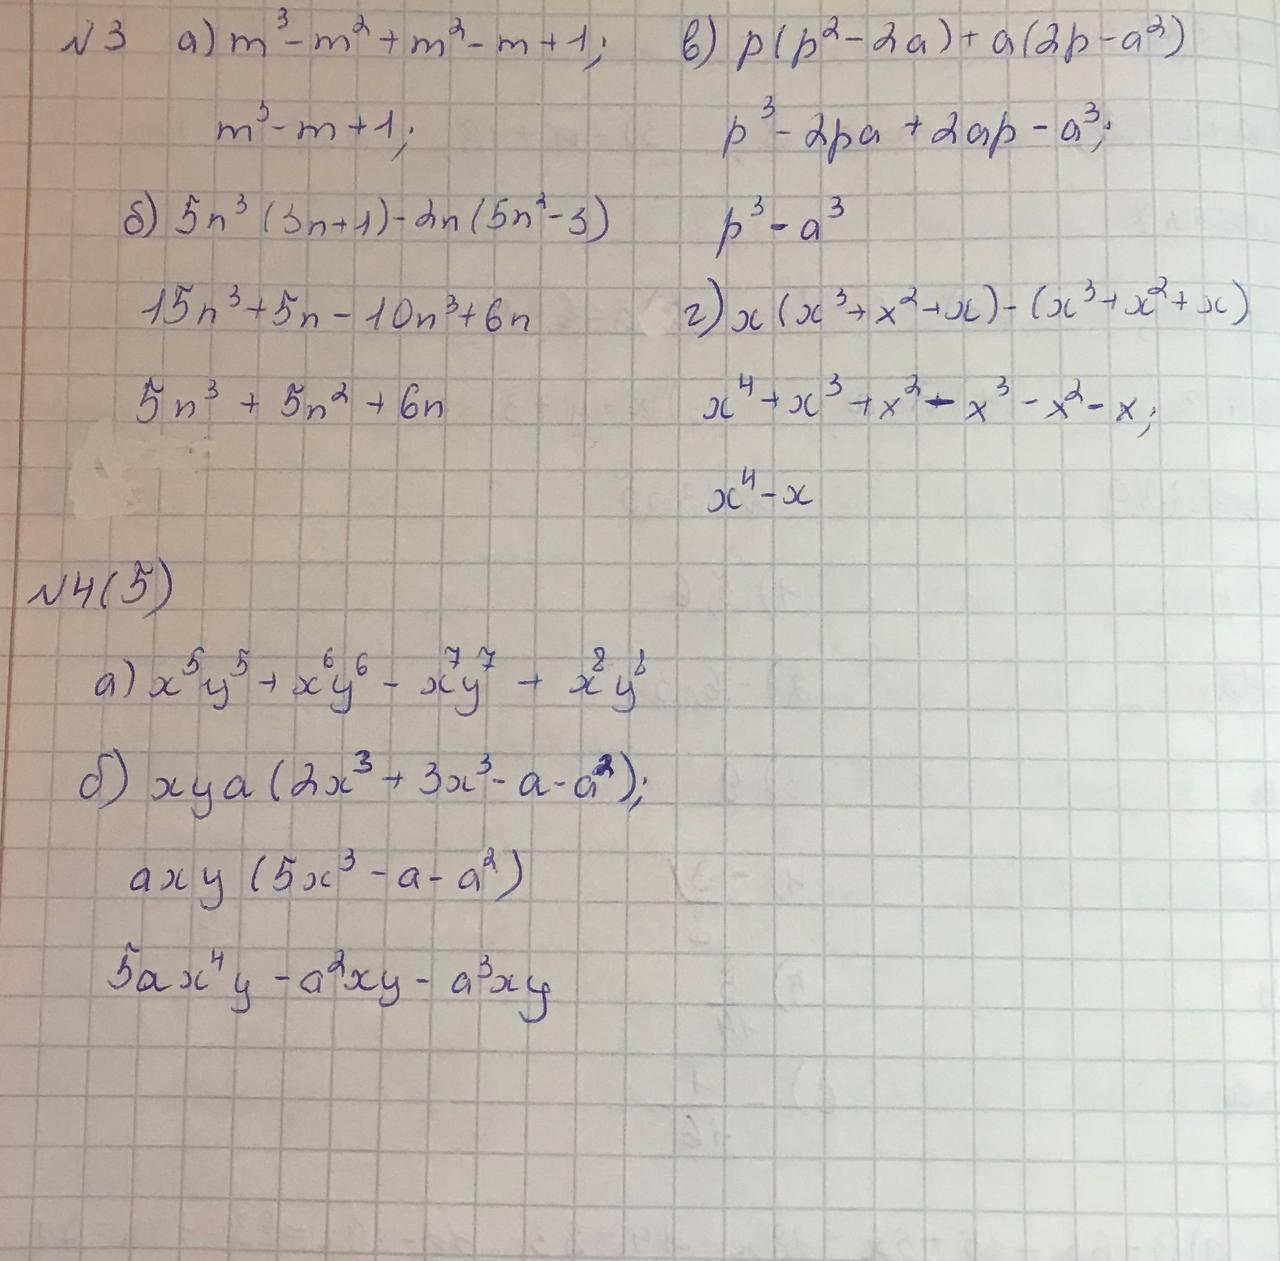 №3 а) m³-m²+m²-m+1;
m³-m+1;
б) 5n³(3n+1)-2n(5n²-3)
15n³+5n-10n³+6n
5n³+5n²+6n
в) p(p²-2a)+a(2p-a²)
p³-2pa+2ap-a³;
p³-a³
г) x(x³+x²+x)-(x³+x²+x)
x⁴+x³+x²-x³-x²-x;
x⁴-x
№4(5)
а) x⁵y⁵+x⁶y⁶-x⁷y⁷+x⁸y⁸
б) xya(2x³+3x³-a-a²);
axy(5x³-a-a²)
5ax⁴y-a²xy-a³xy